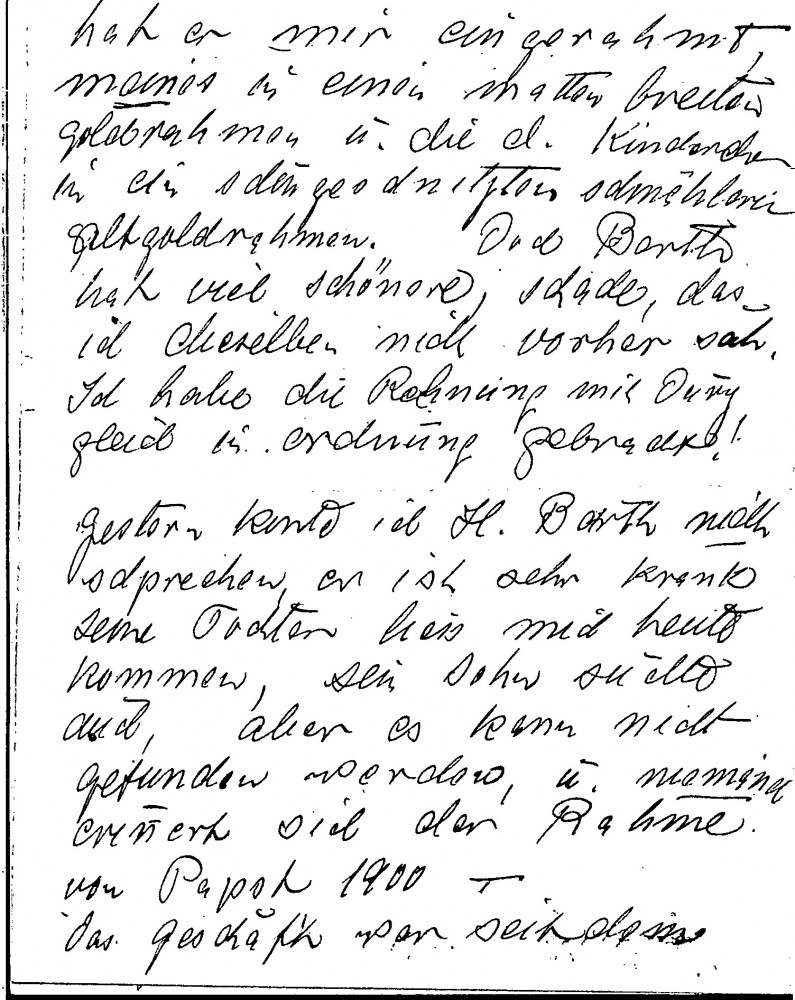 hat er mir eingerahmt,
meines in einen matten breiten
goldrahmen u. die d. Kinderchen
in ein schön geschnitzten schmähleren
altgoldrahmen. Doch Barth
hat viel schönere, schade, das
ich dieselben nicht vorher sah.
Ich habe die Rechnung mit Dury
gleich in ordnung gebracht!
gestern konte ich H. Barth nicht
schprechen, er ist sehr krank
seine Tochter lies mich heute
kommen, sein Sohn suchte
auch, aber es kann nicht
gefunden werden, u. niemand
erinert sich der Rahme.
von Papst 1900 —
Das geschäft war seitdem